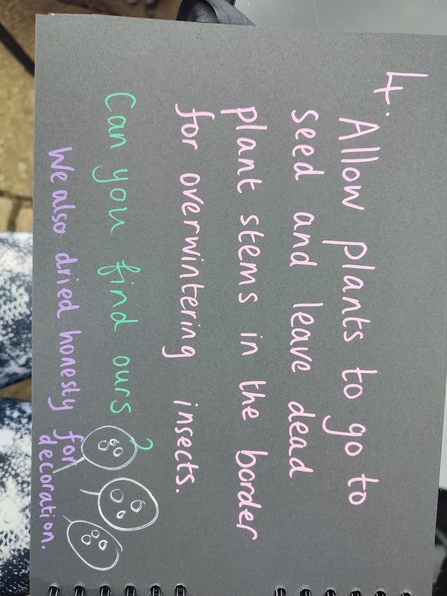 4.
Allow plants to go to
seed and leave dead
plant stems in the border
for overwintering insects.
Can you find ours?
We also dried honesty for
decoration.